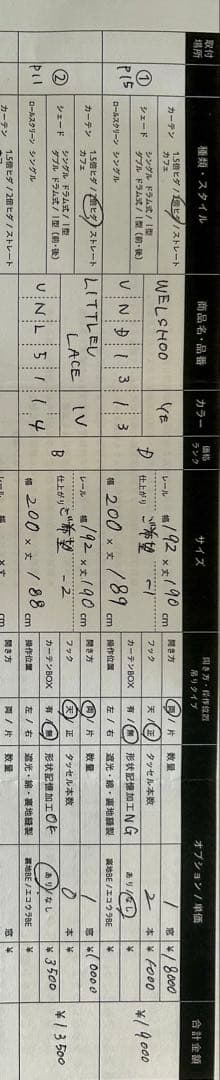 取付場所 種類・スタイル 商品名・品番 カラー 価格ランク サイズ 開き方・操作位置 吊りタイプ オプション/単価 合計金額
① P15
カーテン 1.5倍ヒダ/2倍ヒダ/ストレート カフェ
シェード シングル ドラム式/Ⅰ型 ダブル ドラム式/Ⅰ型(前・後)
ロールスクリーン シングル
WELSHOO YE
VND1313
D
レール 幅192×丈190cm
仕上がり ご希望 -1
幅200×丈189cm
開き方 両/片 数量 1窓 ¥18000
フック 天/正 タッセル本数 2本 ¥1000
カーテンBOX 有/無 形状記憶加工NG あり/なし ¥
操作位置 左/右 遮光・綿・裏地縫製 裏地BE/エコウラBE ¥
¥19000
② P11
カーテン 1.5倍ヒダ/2倍ヒダ/ストレート カフェ
シェード シングル ドラム式/Ⅰ型 ダブル ドラム式/Ⅰ型(前・後)
ロールスクリーン シングル
LITTLEU LACE IV
VNL5114
B
レール 幅192×丈190cm
仕上がり ご希望 -2
幅200×丈188cm
開き方 両/片 数量 1窓 ¥10000
フック 天/正 タッセル本数 0本 ¥
カーテンBOX 有/無 形状記憶加工OK あり/なし ¥3500
操作位置 左/右 遮光・綿・裏地縫製 裏地BE/エコウラBE ¥
¥13500
カーテン 1.5倍ヒダ/2倍ヒダ/ストレート カフェ
レール 幅 ×丈 cm
開き方 両/片 数量 窓 ¥